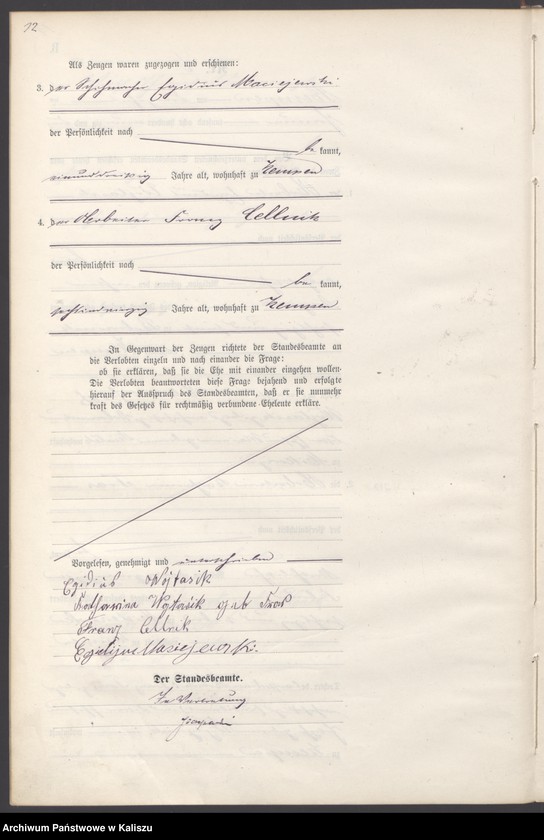 12
Als Zeugen waren zugezogen und erschienen:
3. der Schuhmacher Egidius Maciejewski
der Persönlichkeit nach
be kannt,
einunddreißig Jahre alt, wohnhaft zu Kempen
4. der Arbeiter Franz Cellnik
der Persönlichkeit nach
be kannt,
Jahre alt, wohnhaft zu Kempen
In Gegenwart der Zeugen richtete der Standesbeamte an
die Verlobten einzeln und nach einander die Frage:
ob sie erklären, daß sie die Ehe mit einander eingehen wollen.
Die Verlobten beantworteten diese Frage bejahend und erfolgte
hierauf der Ausspruch des Standesbeamten, daß er sie nunmehr
kraft des Gesetzes für rechtmäßig verbundene Eheleute erkläre.
Vorgelesen, genehmigt und unterschrieben
Egidius Wojtasik
Katharina Wojtasik geb
Franz Cellnik
Egidijus Maciejewski.
Der Standesbeamte.
In Vertretung
Archiwum Państwowe w Kaliszu